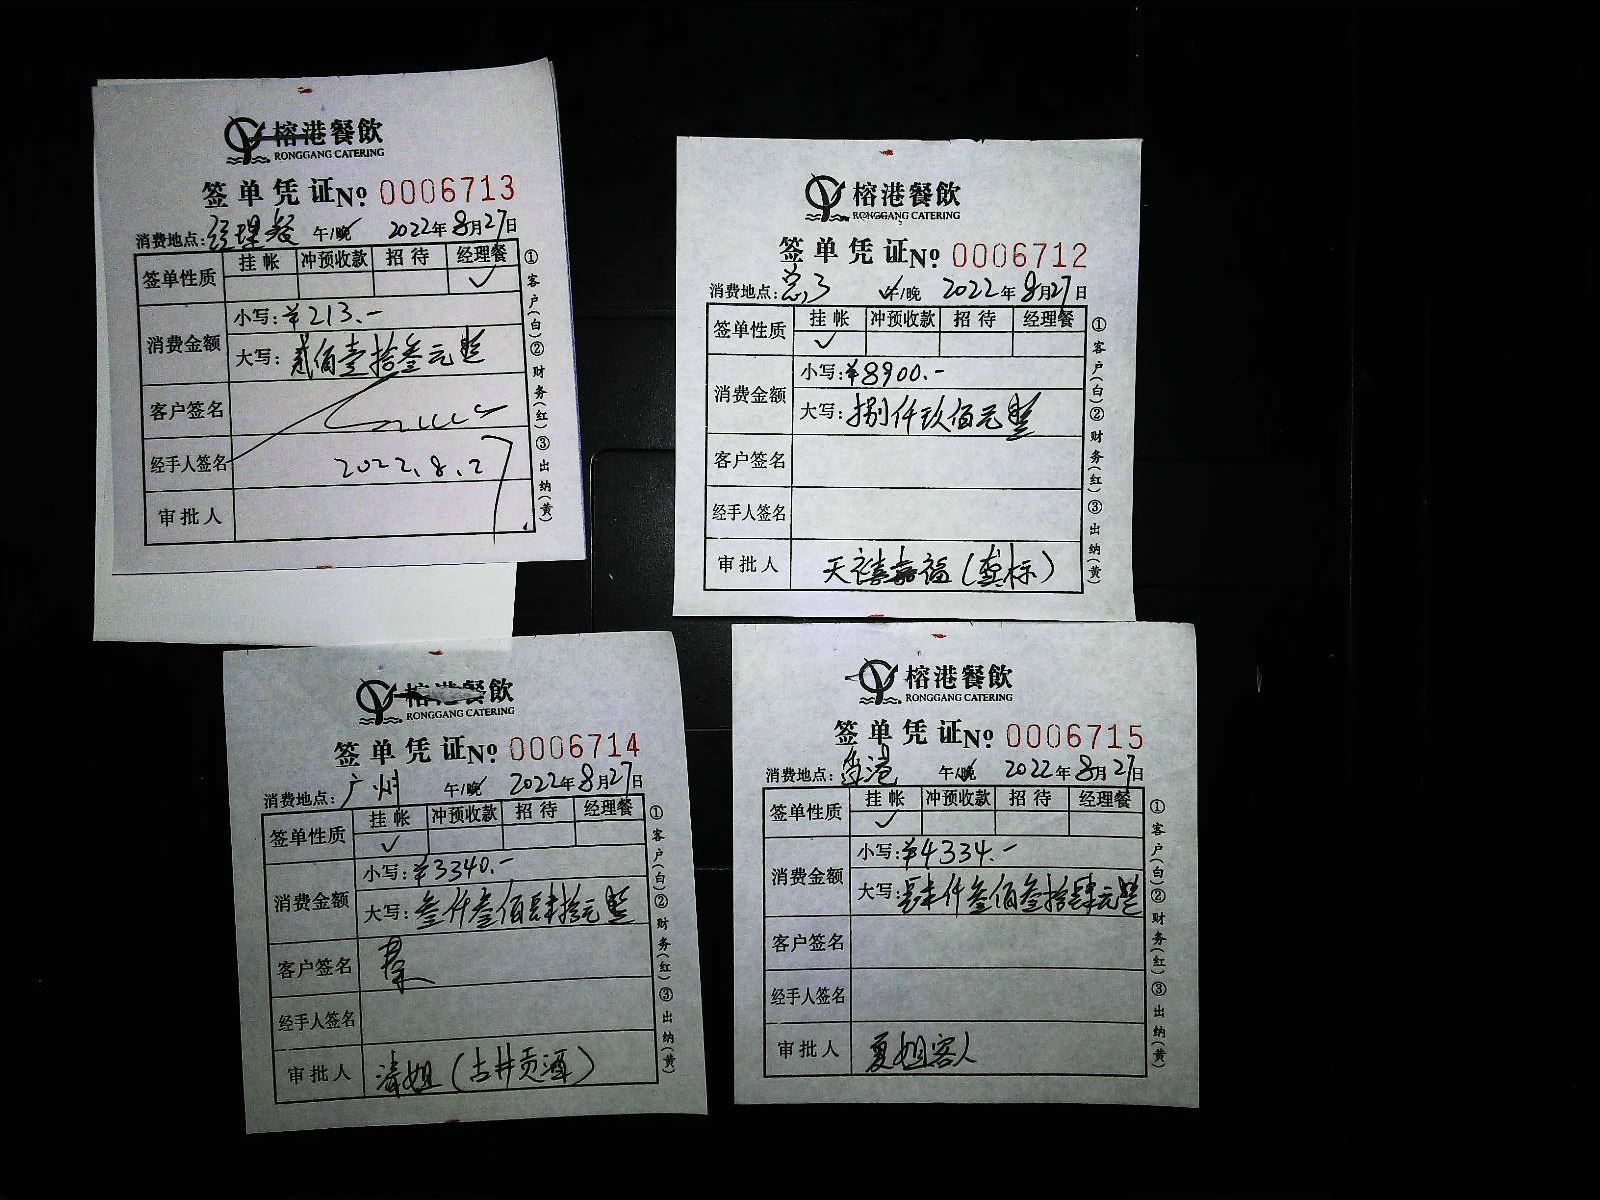 榕港餐飲
RONGGANG CATERING
签单凭证 No. 0006713
消费地点: 经理餐 午/晚 2022年8月27日
签单性质 挂帐 冲预收款 招待 经理餐
✓
消费金额 小写: ¥213.-
大写: 贰佰壹拾叁元整
客户签名
经手人签名 2022.8.27
审批人
①客户(白)②财务(红)③出纳(黄)
榕港餐飲
RONGGANG CATERING
签单凭证 No. 0006712
消费地点: 午/晚 2022年8月27日
签单性质 挂帐 冲预收款 招待 经理餐
✓
消费金额 小写: ¥8900.-
大写: 捌仟玖佰元整
客户签名
经手人签名
审批人 天禧嘉福(标)
①客户(白)②财务(红)③出纳(黄)
榕港餐飲
RONGGANG CATERING
签单凭证 No. 0006714
消费地点: 广州 午/晚 2022年8月27日
签单性质 挂帐 冲预收款 招待 经理餐
✓
消费金额 小写: ¥3340.-
大写: 叁仟叁佰肆拾元整
客户签名
经手人签名
审批人 清姐(古井贡酒)
①客户(白)②财务(红)③出纳(黄)
榕港餐飲
RONGGANG CATERING
签单凭证 No. 0006715
消费地点: 香港 午/晚 2022年8月27日
签单性质 挂帐 冲预收款 招待 经理餐
✓
消费金额 小写: ¥4334.-
大写: 肆仟叁佰叁拾肆元整
客户签名
经手人签名
审批人 夏姐客人
①客户(白)②财务(红)③出纳(黄)